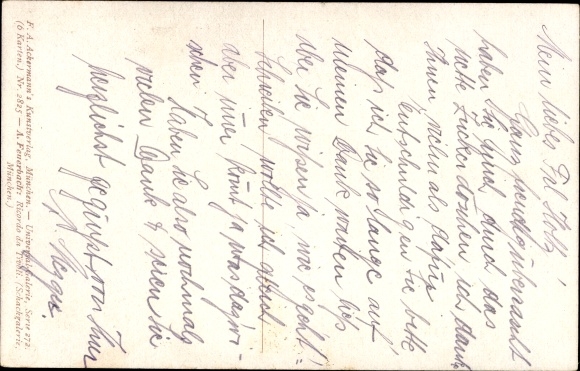 Mein liebes Frl. Holl!
Ganz freudig überrascht
haben Sie mich durch das
nette Zuckerdöschen ich danke
Ihnen mehr als
Entschuldigen Sie bitte
daß ich Sie so lange auf
meinen Dank warten ließ
aber Sie wissen ja, wie es geht!
Schreiben wollte ich gleich
aber immer kommt ja was dazwi=
schen. Haben Sie also nochmals
vielen Dank & seien Sie
herzlichst gegrüßt von Ihrer
F. A. Ackermann's Kunstverlag, München. — Universalgalerie, Serie 272.
(6 Karten.) Nr. 2825 — A. Feuerbach: Ricardo da Tivoli. (Schackgalerie,
München.)